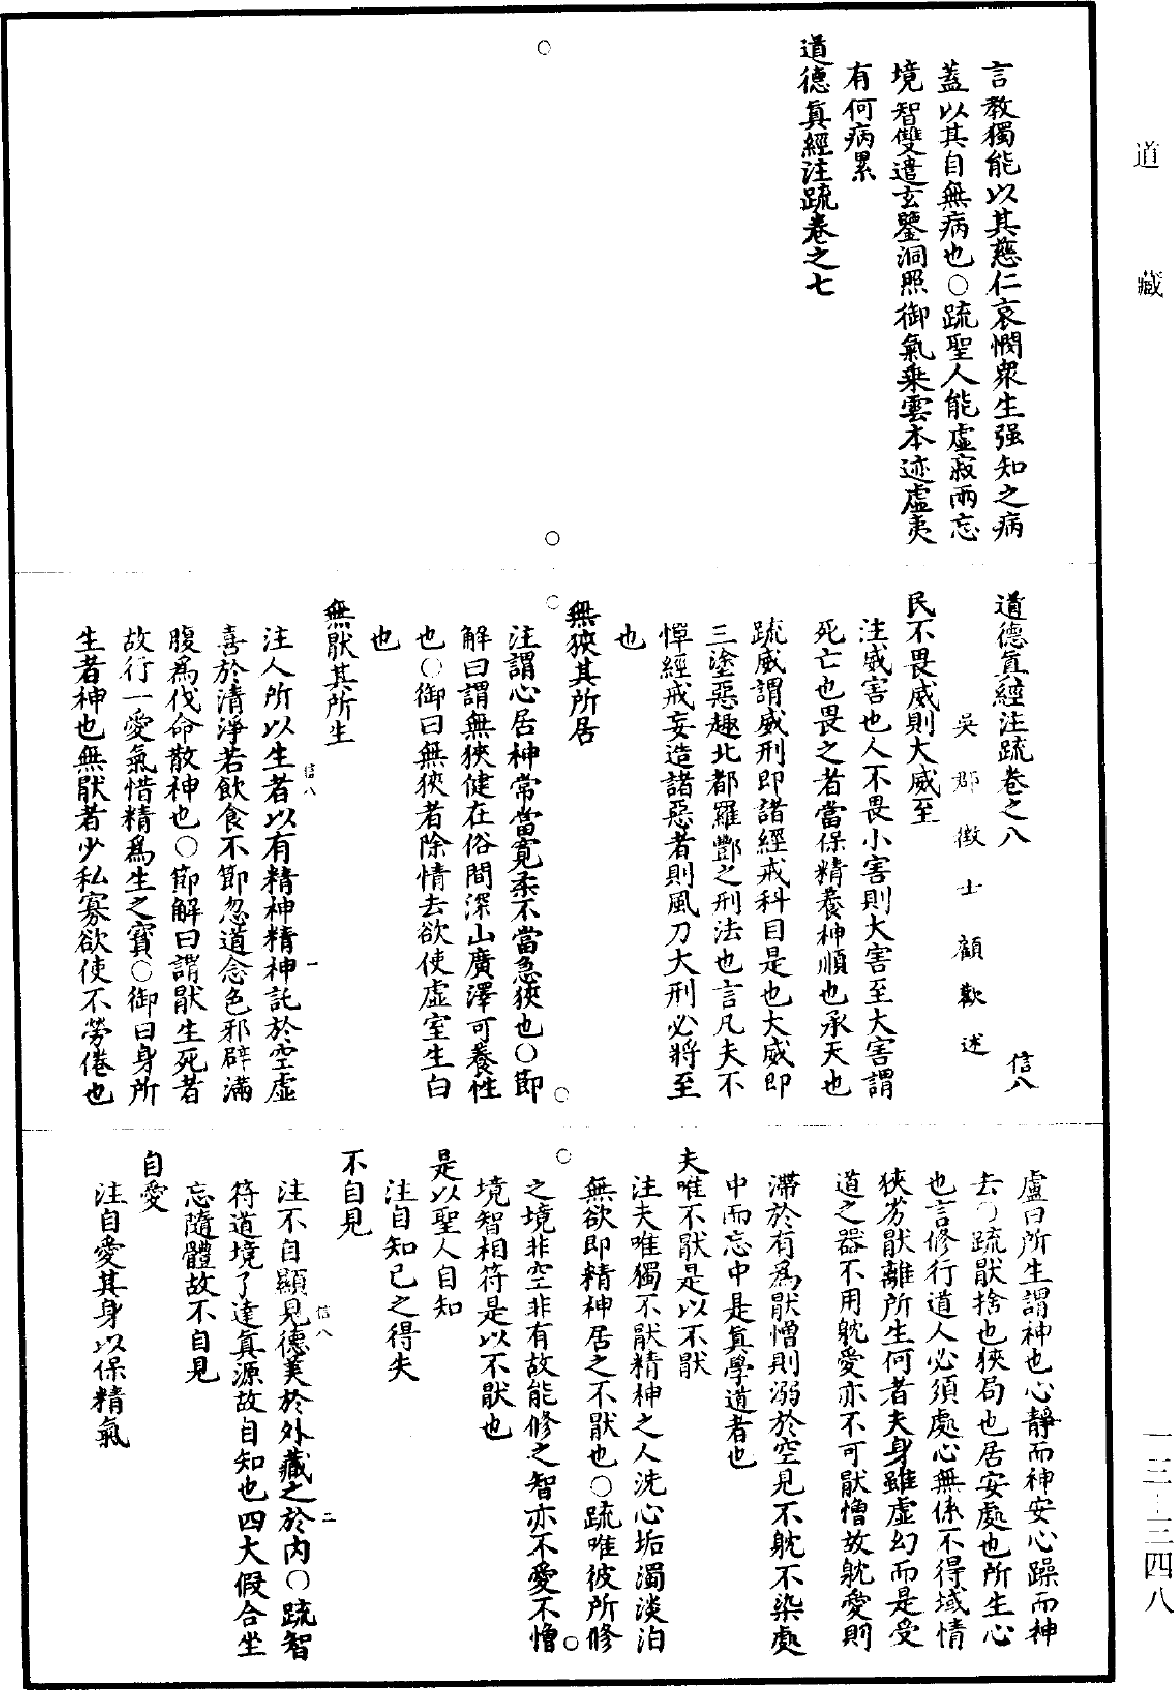 道藏
言教獨能以其慈仁哀憫衆生强知之病
蓋以其自無病也○疏聖人能虛寂兩忘
境智雙遣玄鑒洞照御氣乗雲本迹虛夷
有何病累
道德眞經注疏卷之七
道德眞經注疏卷之八 信八
吳郡徵士顧歡述
民不畏威則大威至
注威害也人不畏小害則大害至大害謂
死亡也畏之者當保精養神順也承天也
疏威謂威刑即諸經戒科目是也大威即
三塗惡趣北都羅酆之刑法也言凡夫不
憚經戒妄造諸惡者則風刀大刑必將至
也
無狹其所居
注謂心居神常當寛柔不當急狹也○節
解曰謂無狹健在俗間深山廣澤可養性
也○御曰無狹者除情去欲使虛室生白
也
無厭其所生
信八 一
注人所以生者以有精神精神託於空虛
喜於清淨若飲食不節忽道念色邪辟滿
腹爲伐命散神也○節解曰謂厭生死者
故行一愛氣惜精爲生之寶○御曰身所
生者神也無厭者少私寡欲使不勞倦也
盧曰所生謂神也心靜而神安心躁而神
去○疏厭捨也狹局也居安處也所生心
也言修行道人必須處心無係不得域情
狹劣厭離所生何者夫身雖虛幻而是受
道之器不用躭愛亦不可厭憎故躭愛則
滯於有爲厭憎則溺於空見不躭不染處
中而忘中是眞學道者也
夫唯不厭是以不厭
注夫唯獨不厭精神之人洗心垢濁淡泊
無欲即精神居之不厭也○疏唯彼所修
之境非空非有故能修之智亦不愛不憎
境智相符是以不厭也
是以聖人自知
注自知己之得失
不自見
信八 二
注不自顯見德美於外藏之於內○疏智
符道境了達眞源故自知也四大假合坐
忘隨體故不自見
自愛
注自愛其身以保精氣
一三—三四八